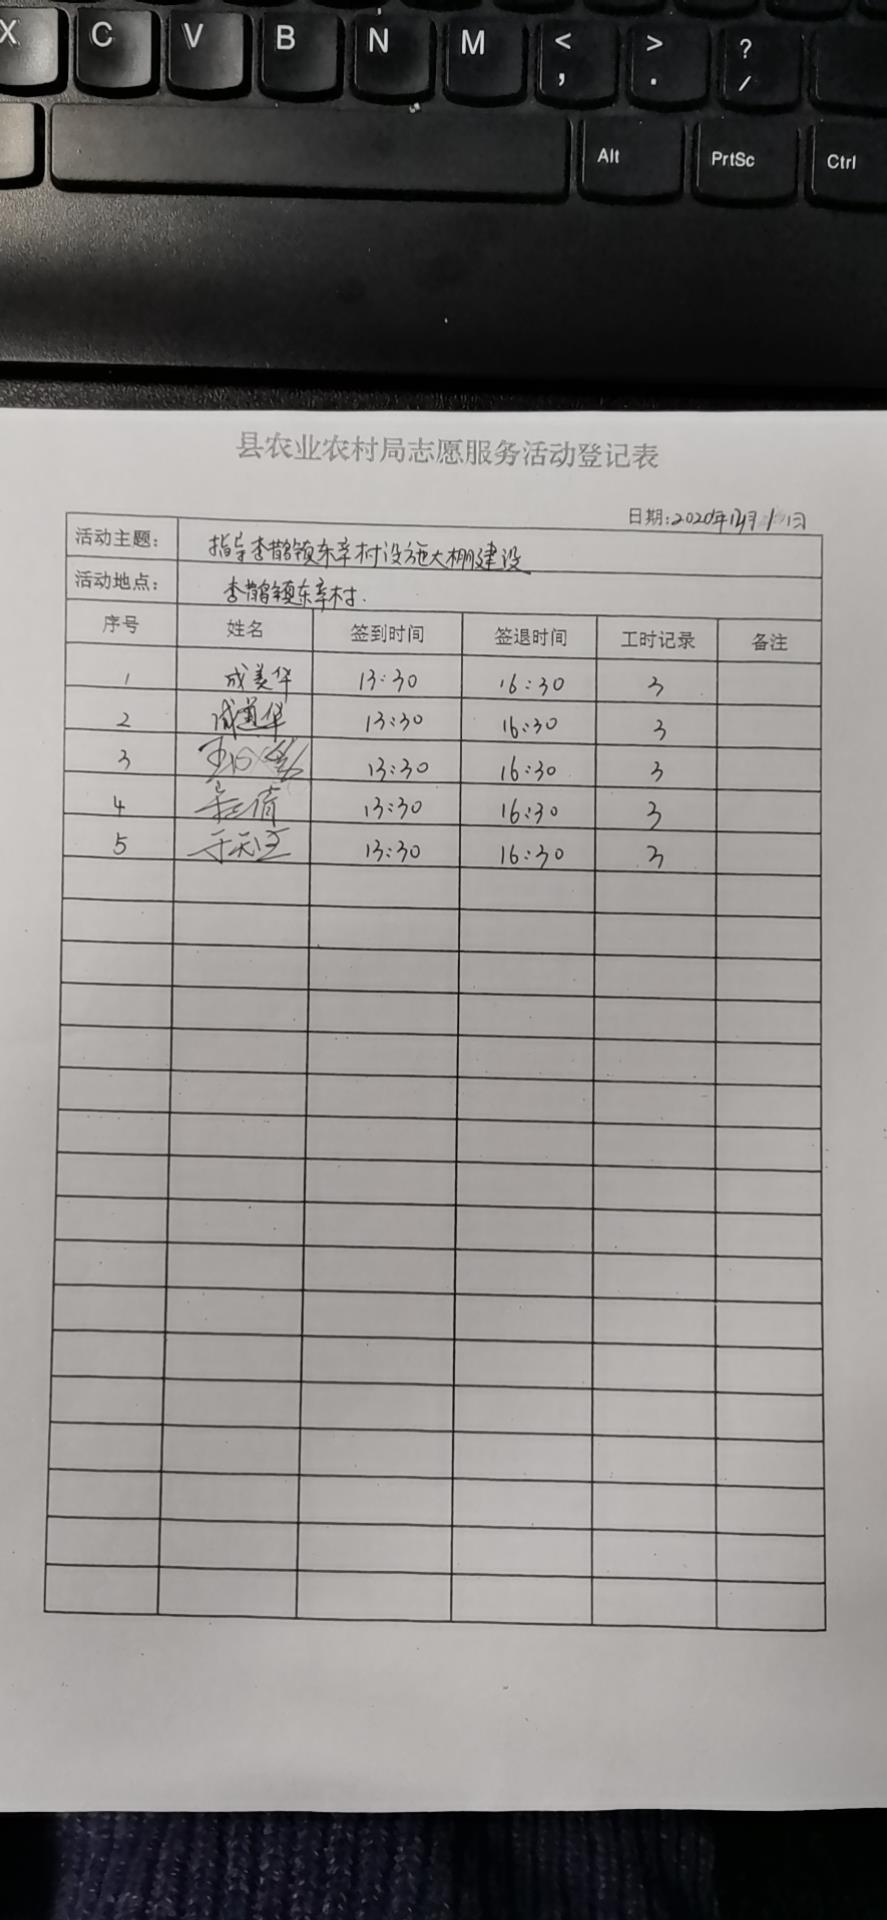 X C V B N M < , > . ? /
Alt PrtSc Ctrl
县农业农村局志愿服务活动登记表
日期:2020年12月1日
活动主题： 指导李鹊镇东辛村设施大棚建设
活动地点： 李鹊镇东辛村.
序号 姓名 签到时间 签退时间 工时记录 备注
1 成美华 13:30 16:30 3
2 13:30 16:30 3
3 13:30 16:30 3
4 13:30 16:30 3
5 13:30 16:30 3